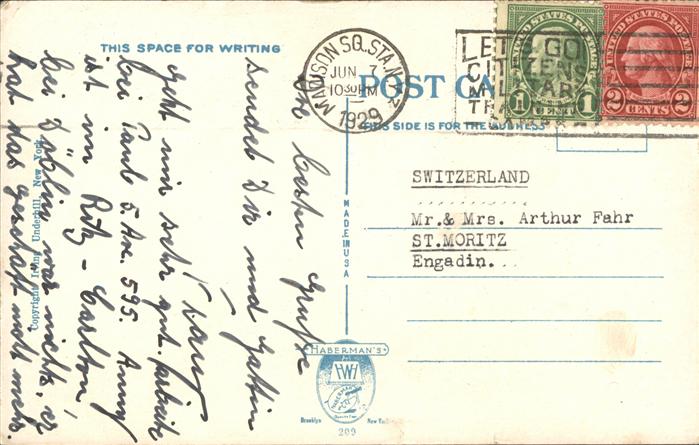 THIS SPACE FOR WRITING
POST CA
THIS SIDE IS FOR THE ADDRESS
MADISON SQ. STA. N.Y.
JUN 7
10 30 PM
1929
LET'S GO
CITIZENS
MILITARY
TRA
CAMPS
UNITED STATES POSTAGE
1 CENT 1
UNITED STATES POSTAGE
2 CENTS 2
SWITZERLAND
Mr.& Mrs. Arthur Fahr
ST.MORITZ
Engadin...
MADE IN USA
HABERMAN'S
Brooklyn New York
209
Copyright Irving Underhill, New York
Die besten Grüße
sendet Dir und Gattin
Fanny
geht mir sehr gut. Arbeite
bei Paul 5. Av. 595. Anny
ist im Ritz-Carlton
bei Döblin war nichts, er
hat das Geschäft nicht mehr.